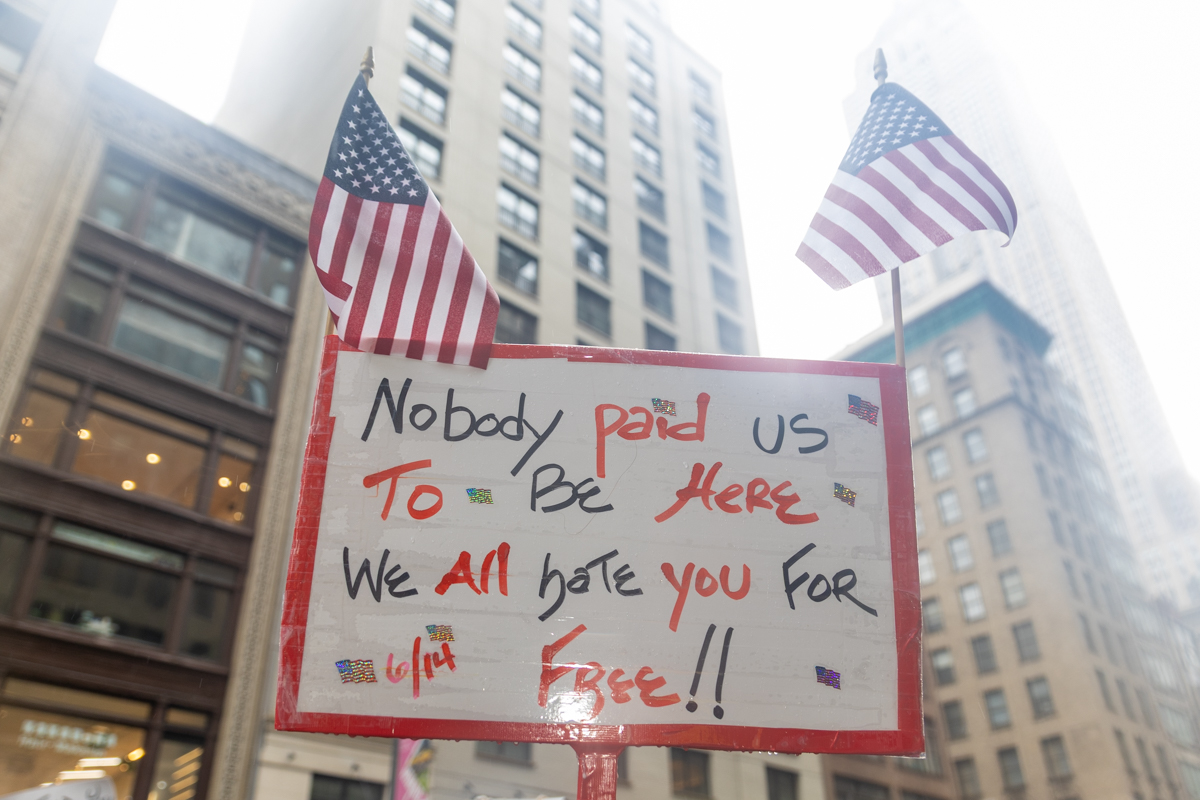 Nobody paid us
To Be Here
We All hate you For
6/14 Free!!